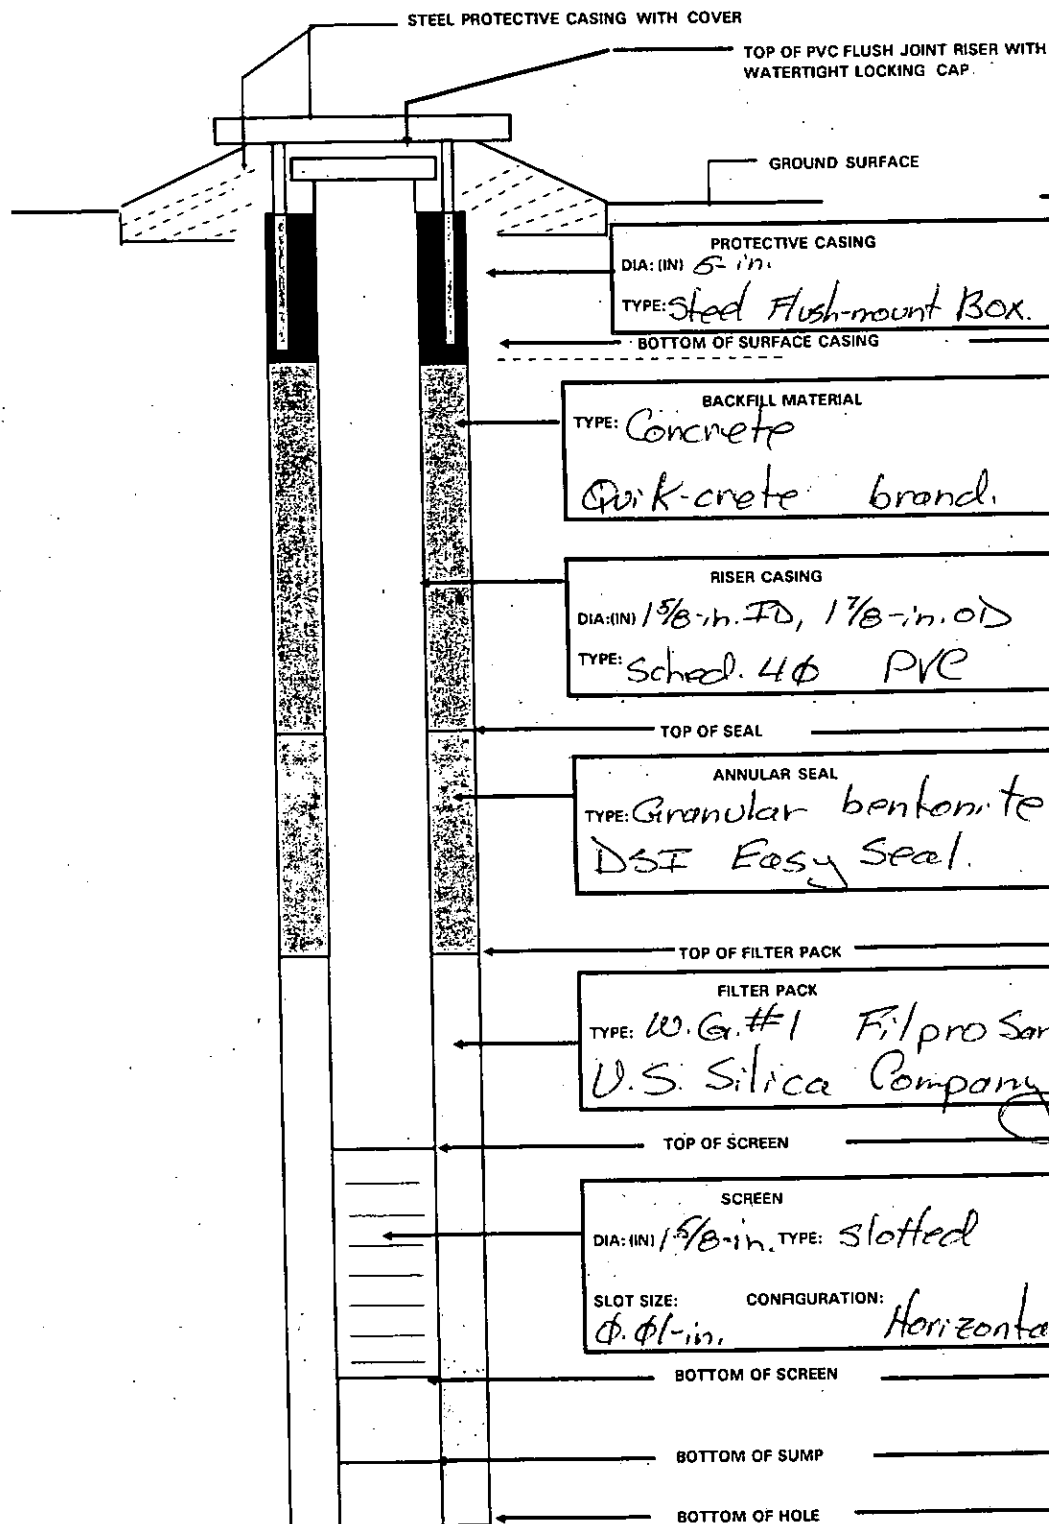 STEEL PROTECTIVE CASING WITH COVER
TOP OF PVC FLUSH JOINT RISER WITH
WATERTIGHT LOCKING CAP
GROUND SURFACE
PROTECTIVE CASING
DIA: (IN) 5-in.
TYPE: Steel Flush-mount Box.
BOTTOM OF SURFACE CASING
BACKFILL MATERIAL
TYPE: Concrete
Quik-crete brand.
RISER CASING
DIA:(IN) 1 5/8-in. ID, 1 7/8-in. OD
TYPE: Sched. 4Ø PVC
TOP OF SEAL
ANNULAR SEAL
TYPE: Granular bentonite
DSI Easy Seal.
TOP OF FILTER PACK
FILTER PACK
TYPE: W.G. #1 Filpro San
U.S. Silica Company
TOP OF SCREEN
SCREEN
DIA: (IN) 1 5/8-in. TYPE: Slotted
SLOT SIZE: CONFIGURATION:
Ø.Ø1-in. Horizonta
BOTTOM OF SCREEN
BOTTOM OF SUMP
BOTTOM OF HOLE